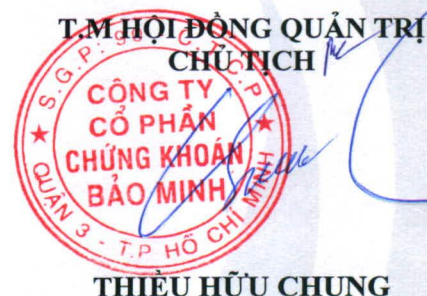 T.M HỘI ĐỒNG QUẢN TRỊ
CHỦ TỊCH
S.G.P: 98 - C.T.C.P
CÔNG TY
CỔ PHẦN
CHỨNG KHOÁN
BẢO MINH
QUẬN 3 - T.P HỒ CHÍ MINH
THIỀU HỮU CHUNG